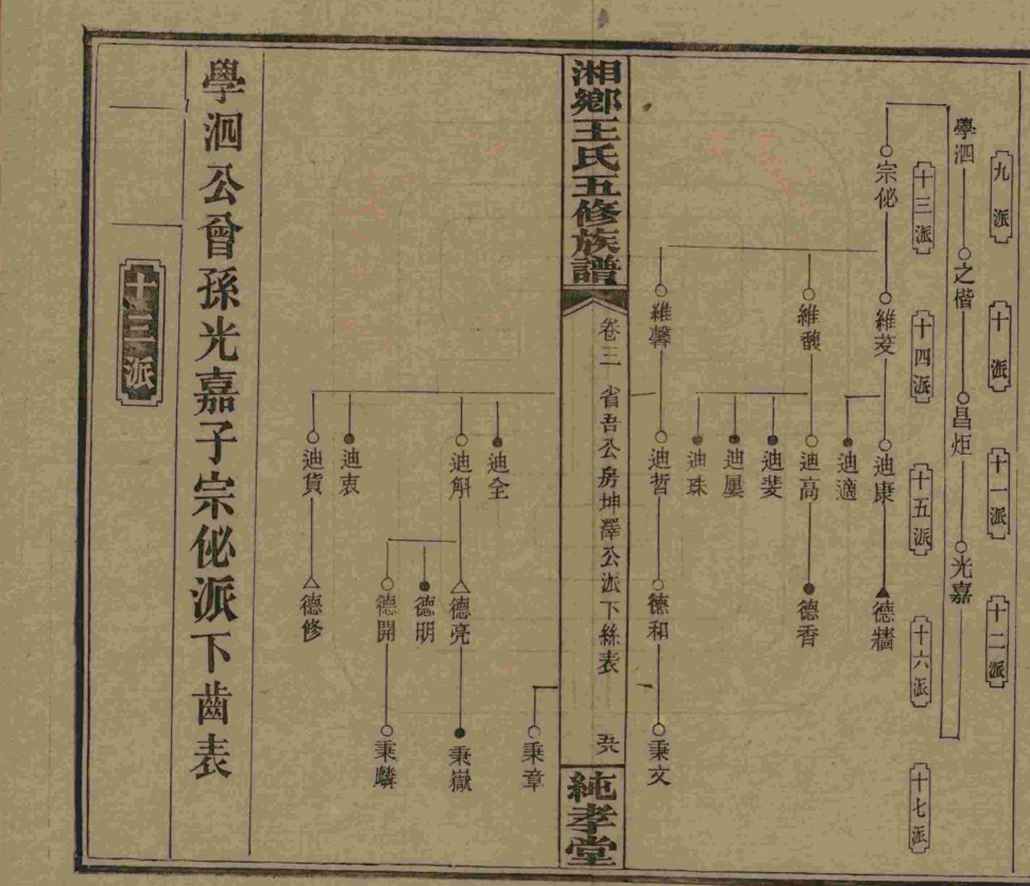 九派
十派
十一派
十二派
學泗
之偕
昌炬
光嘉
十三派
十四派
十五派
十六派
十七派
宗佖
維茭
迪康
德牆
迪適
維馥
迪高
德香
迪斐
迪屢
迪珠
維馨
迪哲
德和
秉文
湘鄉王氏五修族譜
卷三 省吾公房坤澤公派下絲表
純孝堂
秉章
迪全
迪斛
德亮
秉嶽
德明
德開
秉麟
迪衷
迪貨
德修
學泗公曾孫光嘉子宗佖派下齒表
十三派